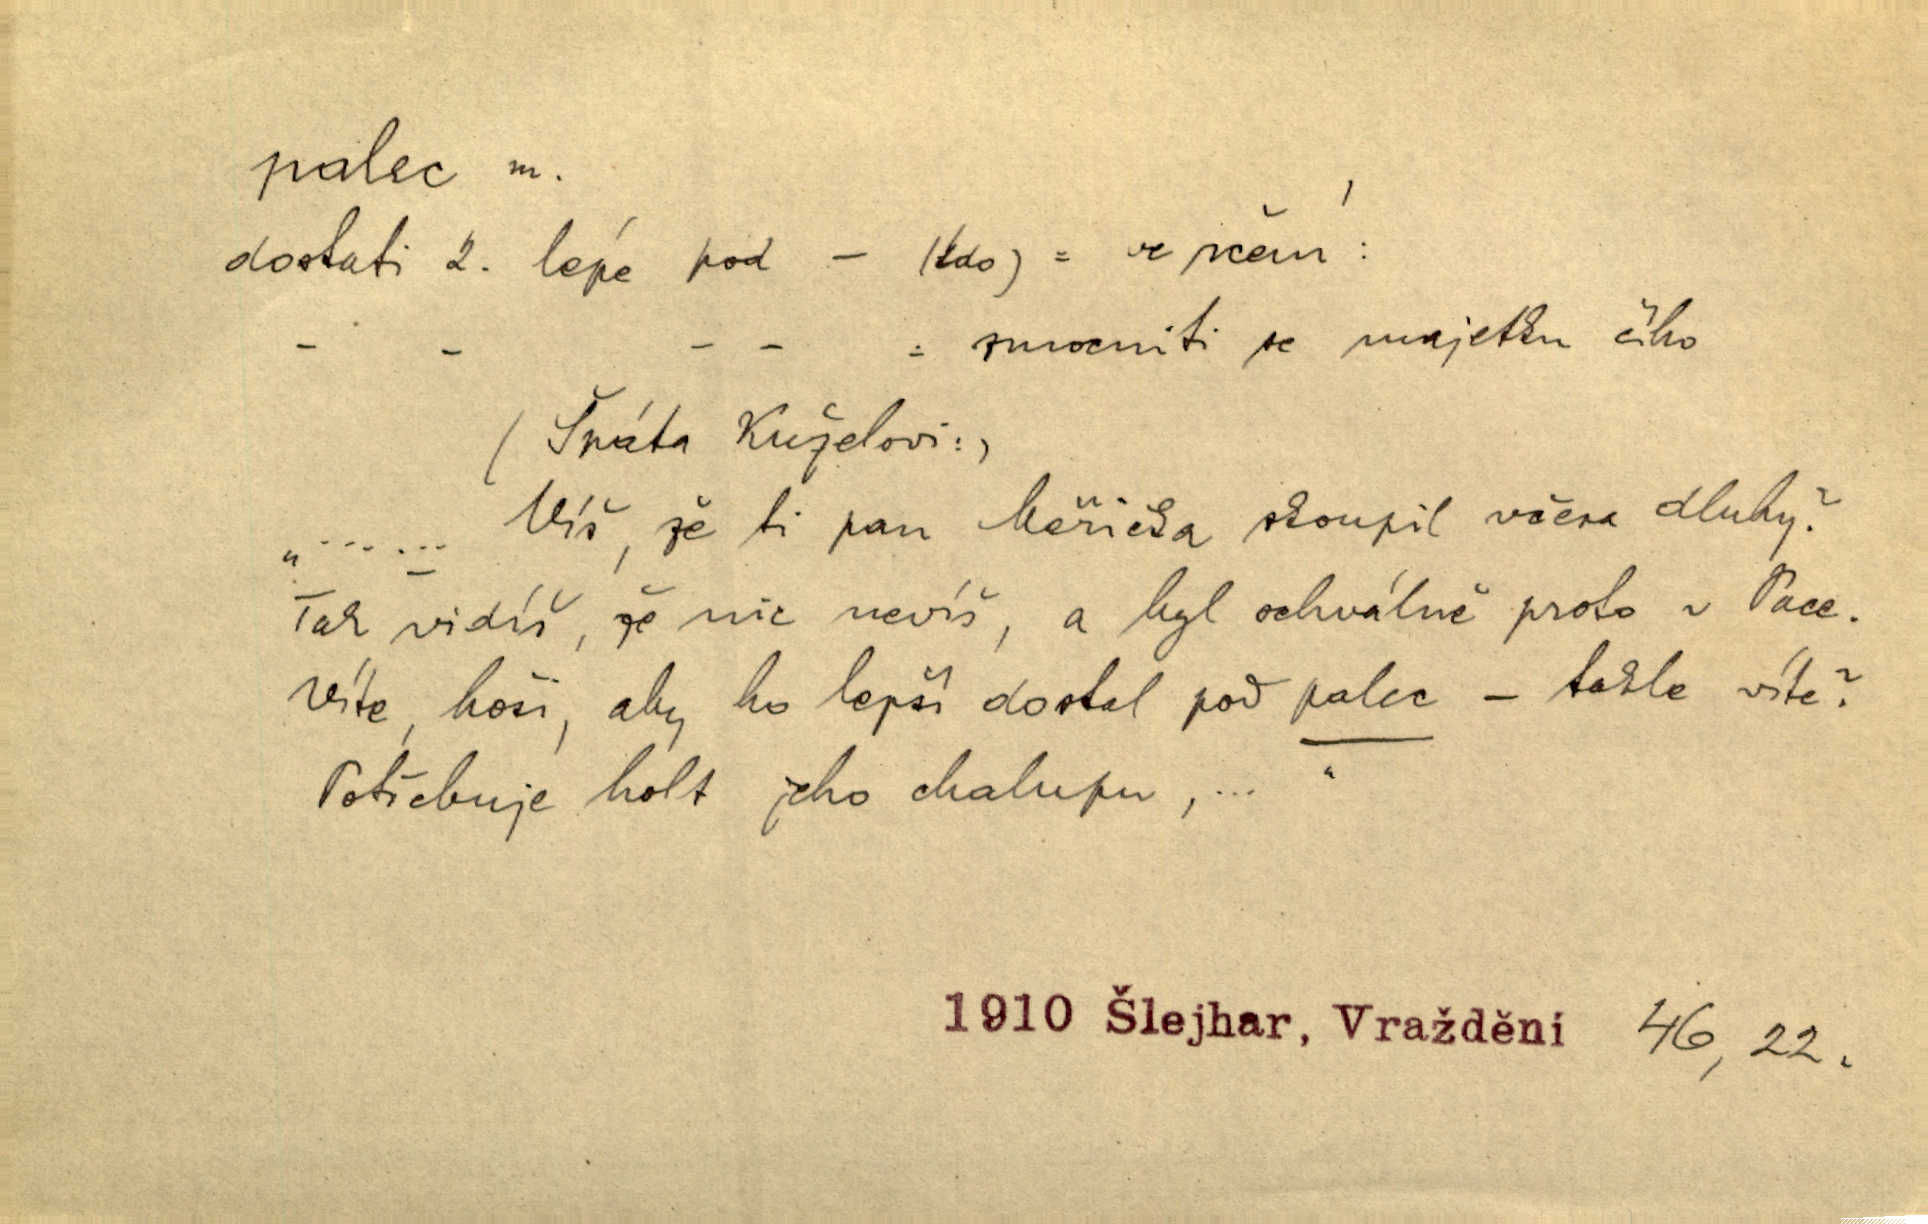 palec m.
dostati 2. lépe pod — (kdo) = ve rčení:
- - - - = zmocniti se majetku čího
( Šnáta Kuželovi:)
„...... Víš, že ti pan Měřička skoupil včera dluhy?
— Tak vidíš, že nic nevíš, a byl schválně proto v Pace.
Víte, hoši, aby ho lepší dostal pod palec – takle víte?
Potřebuje holt jeho chalupu, ..."
1910 Šlejhar, Vraždění 46, 22.